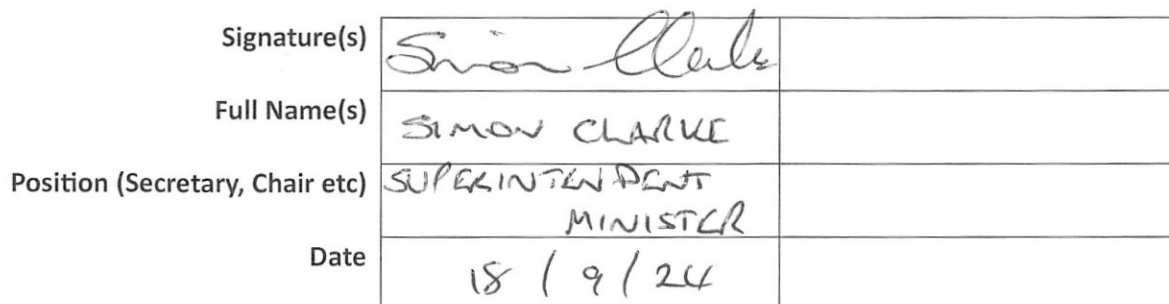 Signature(s) Simon Clarke
Full Name(s) SIMON CLARKE
Position (Secretary, Chair etc) SUPERINTENDENT
MINISTER
Date 18 / 9 / 24